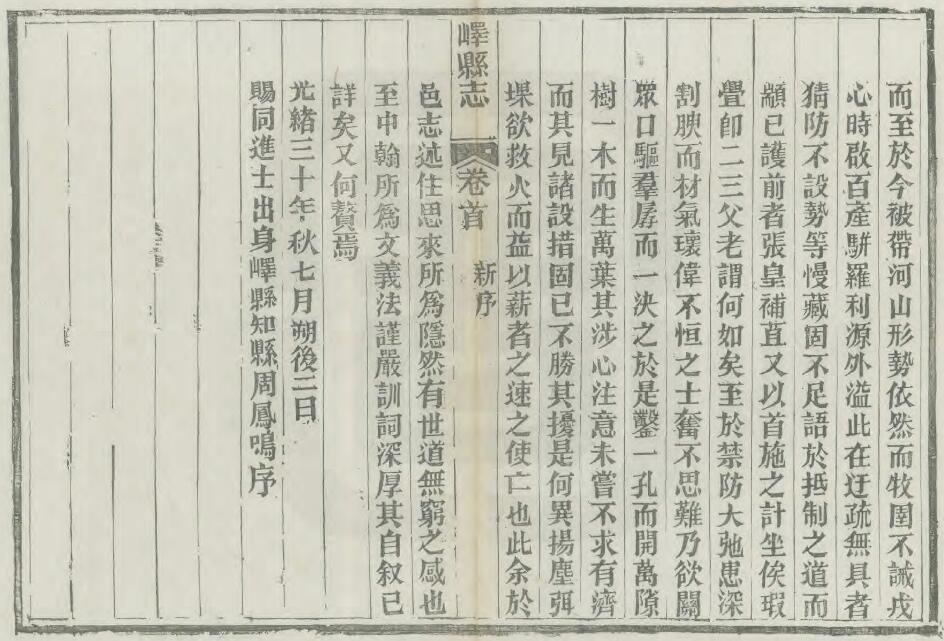 而至於今被帶河山形勢依然而牧圉不誡戎
心時啟百產駢羅利源外溢此在迂疏無具者
猜防不設勢等慢藏固不足語於抵制之道而
顓已護前者張皇補苴又以首施之計坐俟瑕
舋卽二三父老謂何如矣至於禁防大弛患深
割腴而材氣瓌偉不恒之士奮不思難乃欲關
眾口驅羣孱而一決之於是鑿一孔而開萬隙
樹一木而生萬葉其涉心注意未嘗不求有濟
而其見諸設措固已不勝其擾是何異揚塵弭
堁欲救火而益以薪者之速之使亡也此余於
嶧縣志 卷首 新序
邑志述往思來所為隱然有世道無窮之感也
至中翰所為文義法謹嚴訓詞深厚其自叙已
詳矣又何贅焉
光緒三十年秋七月朔後二日
賜同進士出身嶧縣知縣周鳳鳴序